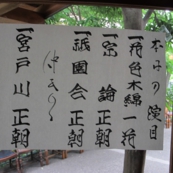 本日の演目
一、猫色木綿 一猫
一、宗論 正朝
一、祇園会 正朝
仲入り
一、宮戸川 正朝